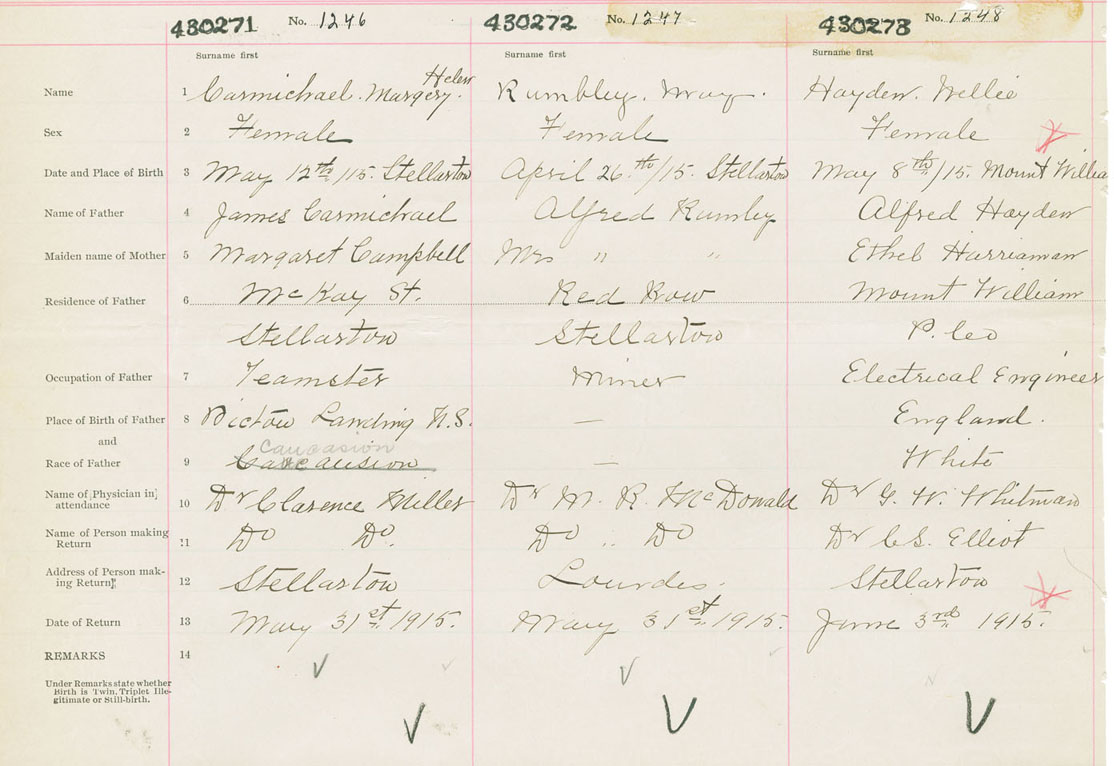 430271 No. 1246 430272 No. 1247 430273 No. 1248
Surname first Surname first Surname first
Helen
Name 1 Carmichael. Margery. Rumbley. May. Hayden. Nellie
Sex 2 Female Female Female
Date and Place of Birth 3 May 12th/15. Stellarton April 26th/15. Stellarton May 8th/15. Mount Willia
Name of Father 4 James Carmichael Alfred Rumley Alfred Hayden
Maiden name of Mother 5 Margaret Campbell Mrs " " Ethel Harriaman
Residence of Father 6 McKay St. Red Row Mount William
Stellarton Stellarton P. Co
Occupation of Father 7 Teamster Miner Electrical Engineer
Place of Birth of Father 8 Pictou Landing N.S. — England.
and
Caucasion
Race of Father 9 — White
Name of Physician in attendance 10 Dr Clarence Miller Dr M. R. McDonald Dr G. W. Whitman
Name of Person making
Return 11 Do Do. Do " Do Dr C.S. Elliot
Address of Person mak-
ing Return 12 Stellarton Lourdes. Stellarton
Date of Return 13 May 31st 1915. May 31st 1915. June 3rd 1915.
REMARKS 14
Under Remarks state whether
Birth is Twin, Triplet Ille-
gitimate or Still-birth.